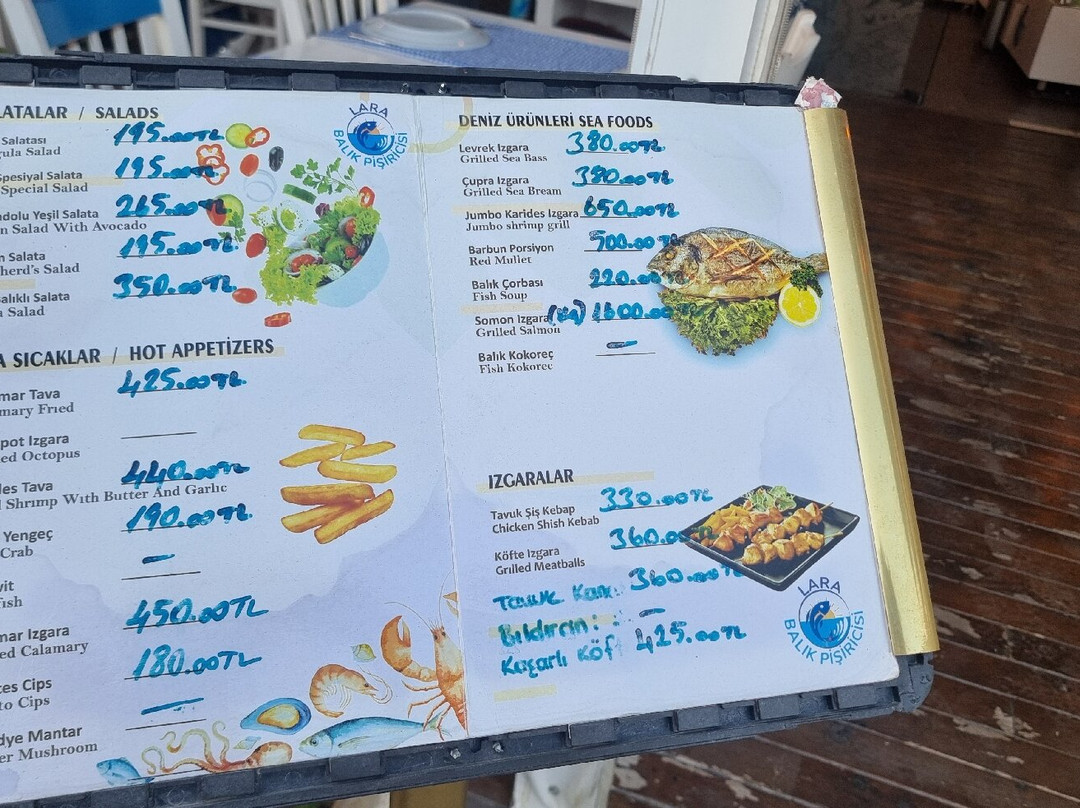 LATALAR / SALADS
Salatası 195.00TL
gula Salad
Spesiyal Salata 195.00TL
Special Salad
adolu Yeşil Salata 265.00TL
n Salad With Avocado
n Salata 195.00TL
herd's Salad
alıklı Salata 350.00TL
a Salad
A SICAKLAR / HOT APPETİZERS
mar Tava 425.00TL
mary Fried
pot Izgara
ed Octopus
les Tava 440.00TL
d Shrimp With Butter And Garlic
Yengeç 190.00TL
Crab
vit –
ish
mar Izgara 450.00TL
ed Calamary
tes Cips 180.00TL
to Cips
dye Mantar –
er Mushroom
LARA
BALIK PİŞİRİCİSİ
DENİZ ÜRÜNLERİ SEA FOODS
Levrek Izgara 380.00TL
Grilled Sea Bass
Çupra Izgara 380.00TL
Grilled Sea Bream
Jumbo Karides Izgara 650.00TL
Jumbo shrimp grill
Barbun Porsiyon 500.00TL
Red Mullet
Balık Çorbası 220.00TL
Fish Soup
Somon Izgara 1600.00
Grilled Salmon
Balık Kokoreç –
Fish Kokorec
IZGARALAR
Tavuk Şiş Kebap 330.00TL
Chicken Shish Kebab
Köfte Izgara 360.00
Grilled Meatballs
Tavuk Kan. 360.00TL
Bıldırcın: –
Kaşarlı Köf 425.00TL
LARA
BALIK PİŞİRİCİSİ